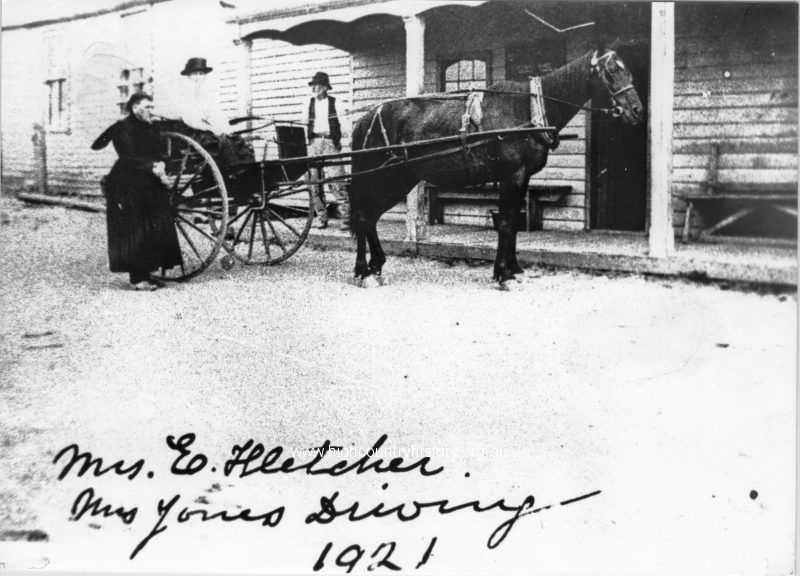 Mrs. E. Fletcher.
www.highcountryhistory.org.au
Mrs Jones Driving
1921